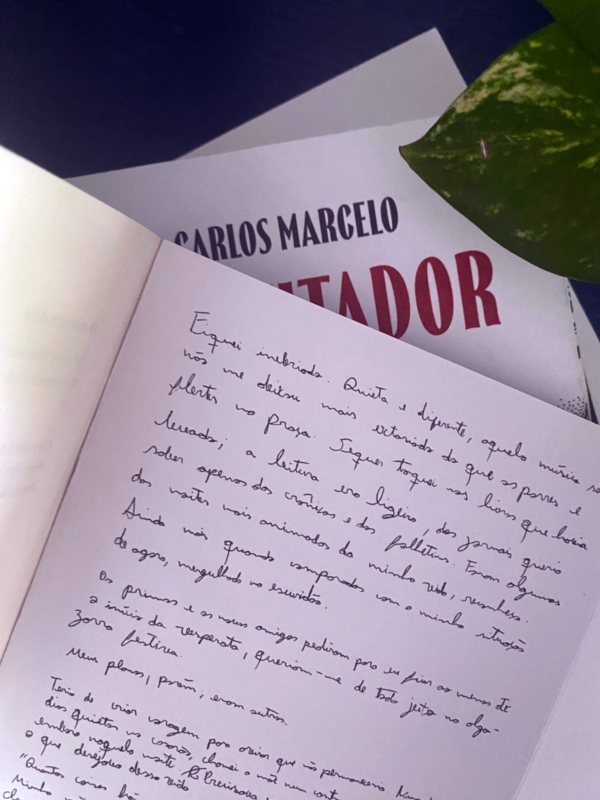 CARLOS MARCELO
TADOR
Fiquei inebriada. Quieta e diferente, aquela música só
não me deixou mais extasiada do que as farras e
flertes na praça. Sequer toquei nos livros que havia
levado; a leitura era ligeira, dos jornais queria
saber apenas das crônicas e dos folhetins. Eram algumas
das noites mais animadas da minha vida, reconheço.
Ainda mais quando comparadas com a minha situação
de agora, mergulhada na escuridão.
Os primos e os novos amigos pediram para eu ficar ao menos até
o início da vesperata, queriam-me de todo jeito na alga-
zarra festiva.
Meus planos, porém, eram outros.
Teria de criar coragem para avisar que não permaneceria.
dias quietos na casa, chamei a
embora naquela noite.
o que desejava dessa vida
"Quantas coisas
Minha